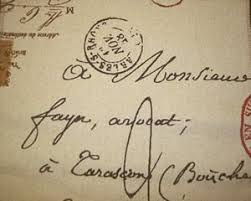 M
NOV
ARLES-S-RHONE
à Monsieur
fayn, avocat;
à Tarascon (Bouche